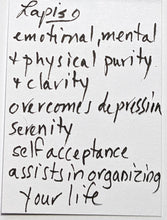 Lapis
emotional, mental
& physical purity
& clarity
overcomes depression
serenity
self acceptance
assists in organizing
your life